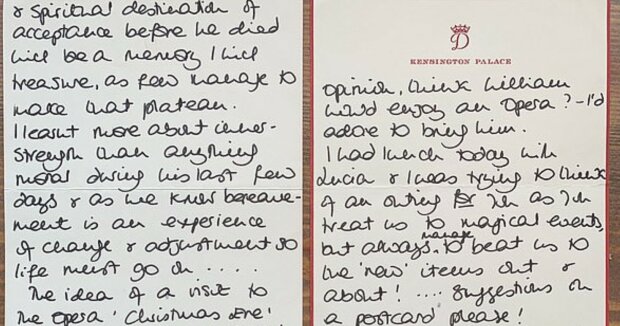 & spiritual destination of
acceptance before he died
will be a memory I will
treasure, as few manage to
make that plateau.
I learnt more about inner-
strength than anything
moral during his last few
days & as we know bereave-
ment is an experience
of change & adjustment so
life must go on.....
The idea of a visit to
the opera 'Christmas Eve'!
D
KENSINGTON PALACE
opinion, think William
would enjoy an Opera? - I'd
adore to bring him.
I had lunch today with
Lucia & I was trying to think
of an outing for as
treat us to magical events,
but always manage to beat us to
the 'new' items out &
about! .... suggestions on
a postcard please!